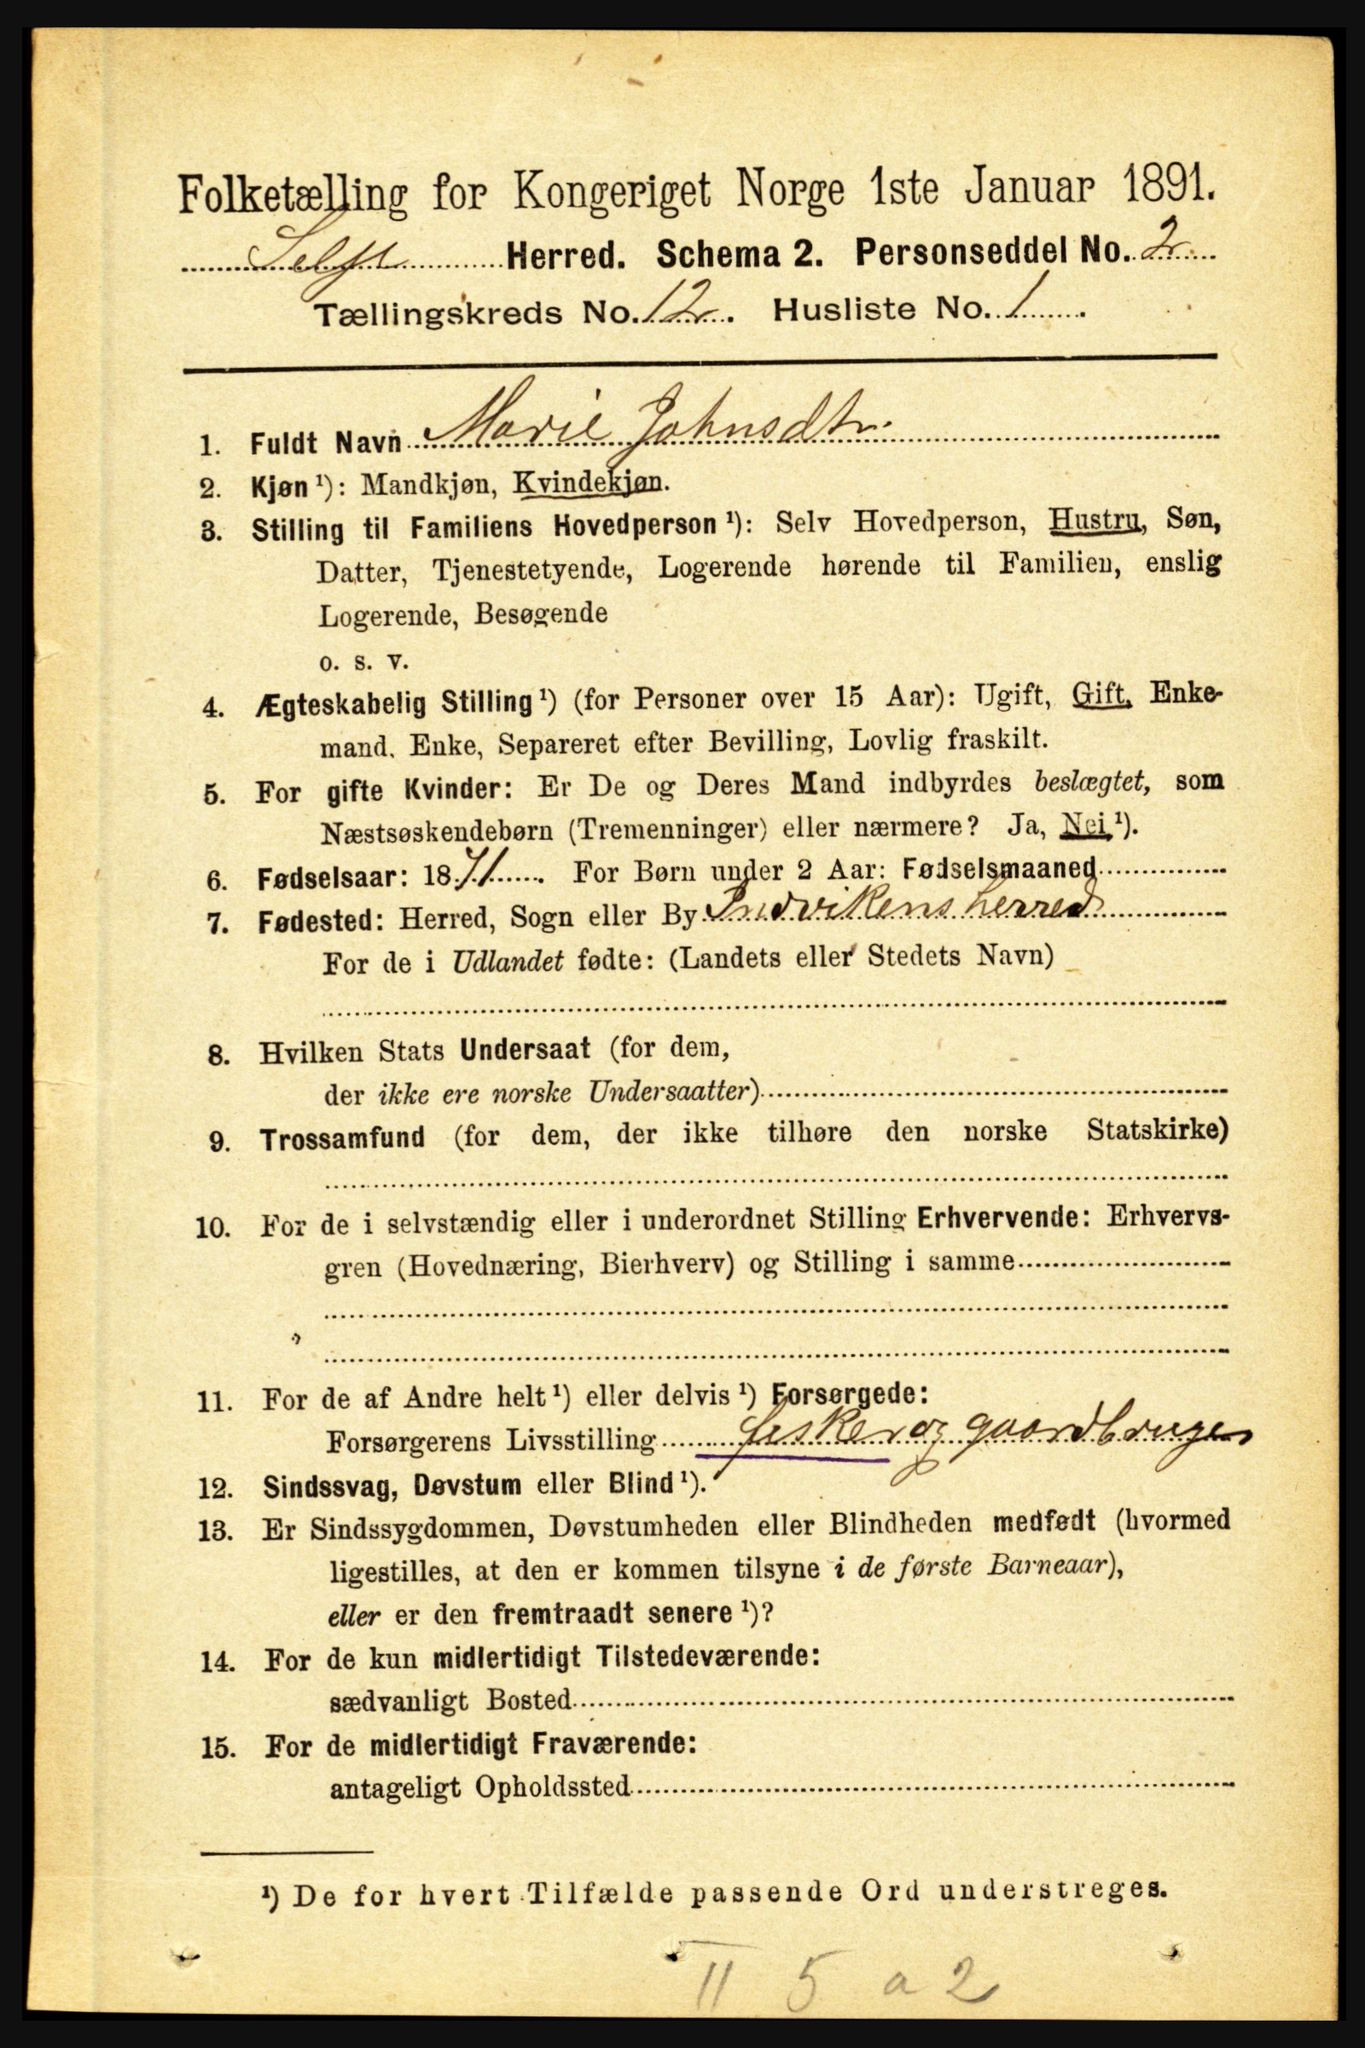 Folketælling for Kongeriget Norge 1ste Januar 1891.
Selje Herred. Schema 2. Personseddel No. 2
Tællingskreds No. 12. Husliste No. 1
1. Fuldt Navn Marie Johnsdtr.
2. Kjøn ¹): Mandkjøn, Kvindekjøn.
3. Stilling til Familiens Hovedperson ¹): Selv Hovedperson, Hustru, Søn,
Datter, Tjenestetyende, Logerende hørende til Familien, enslig
Logerende, Besøgende
o. s. v.
4. Ægteskabelig Stilling ¹) (for Personer over 15 Aar): Ugift, Gift, Enke-
mand, Enke, Separeret efter Bevilling, Lovlig fraskilt.
5. For gifte Kvinder: Er De og Deres Mand indbyrdes beslægtet, som
Næstsøskendebørn (Tremenninger) eller nærmere? Ja, Nei ¹).
6. Fødselsaar: 1871. For Børn under 2 Aar: Fødselsmaaned
7. Fødested: Herred, Sogn eller By Indvikens herred
For de i Udlandet fødte: (Landets eller Stedets Navn)
8. Hvilken Stats Undersaat (for dem,
der ikke ere norske Undersaatter)
9. Trossamfund (for dem, der ikke tilhøre den norske Statskirke)
10. For de i selvstændig eller i underordnet Stilling Erhvervende: Erhvervs-
gren (Hovednæring, Bierhverv) og Stilling i samme
11. For de af Andre helt ¹) eller delvis ¹) Forsørgede:
Forsørgerens Livsstilling fisker og gaardbruger
12. Sindssvag, Døvstum eller Blind ¹).
13. Er Sindssygdommen, Døvstumheden eller Blindheden medfødt (hvormed
ligestilles, at den er kommen tilsyne i de første Barneaar),
eller er den fremtraadt senere ¹)?
14. For de kun midlertidigt Tilstedeværende:
sædvanligt Bosted
15. For de midlertidigt Fraværende:
antageligt Opholdssted
¹) De for hvert Tilfælde passende Ord understreges.
II 5 a 2